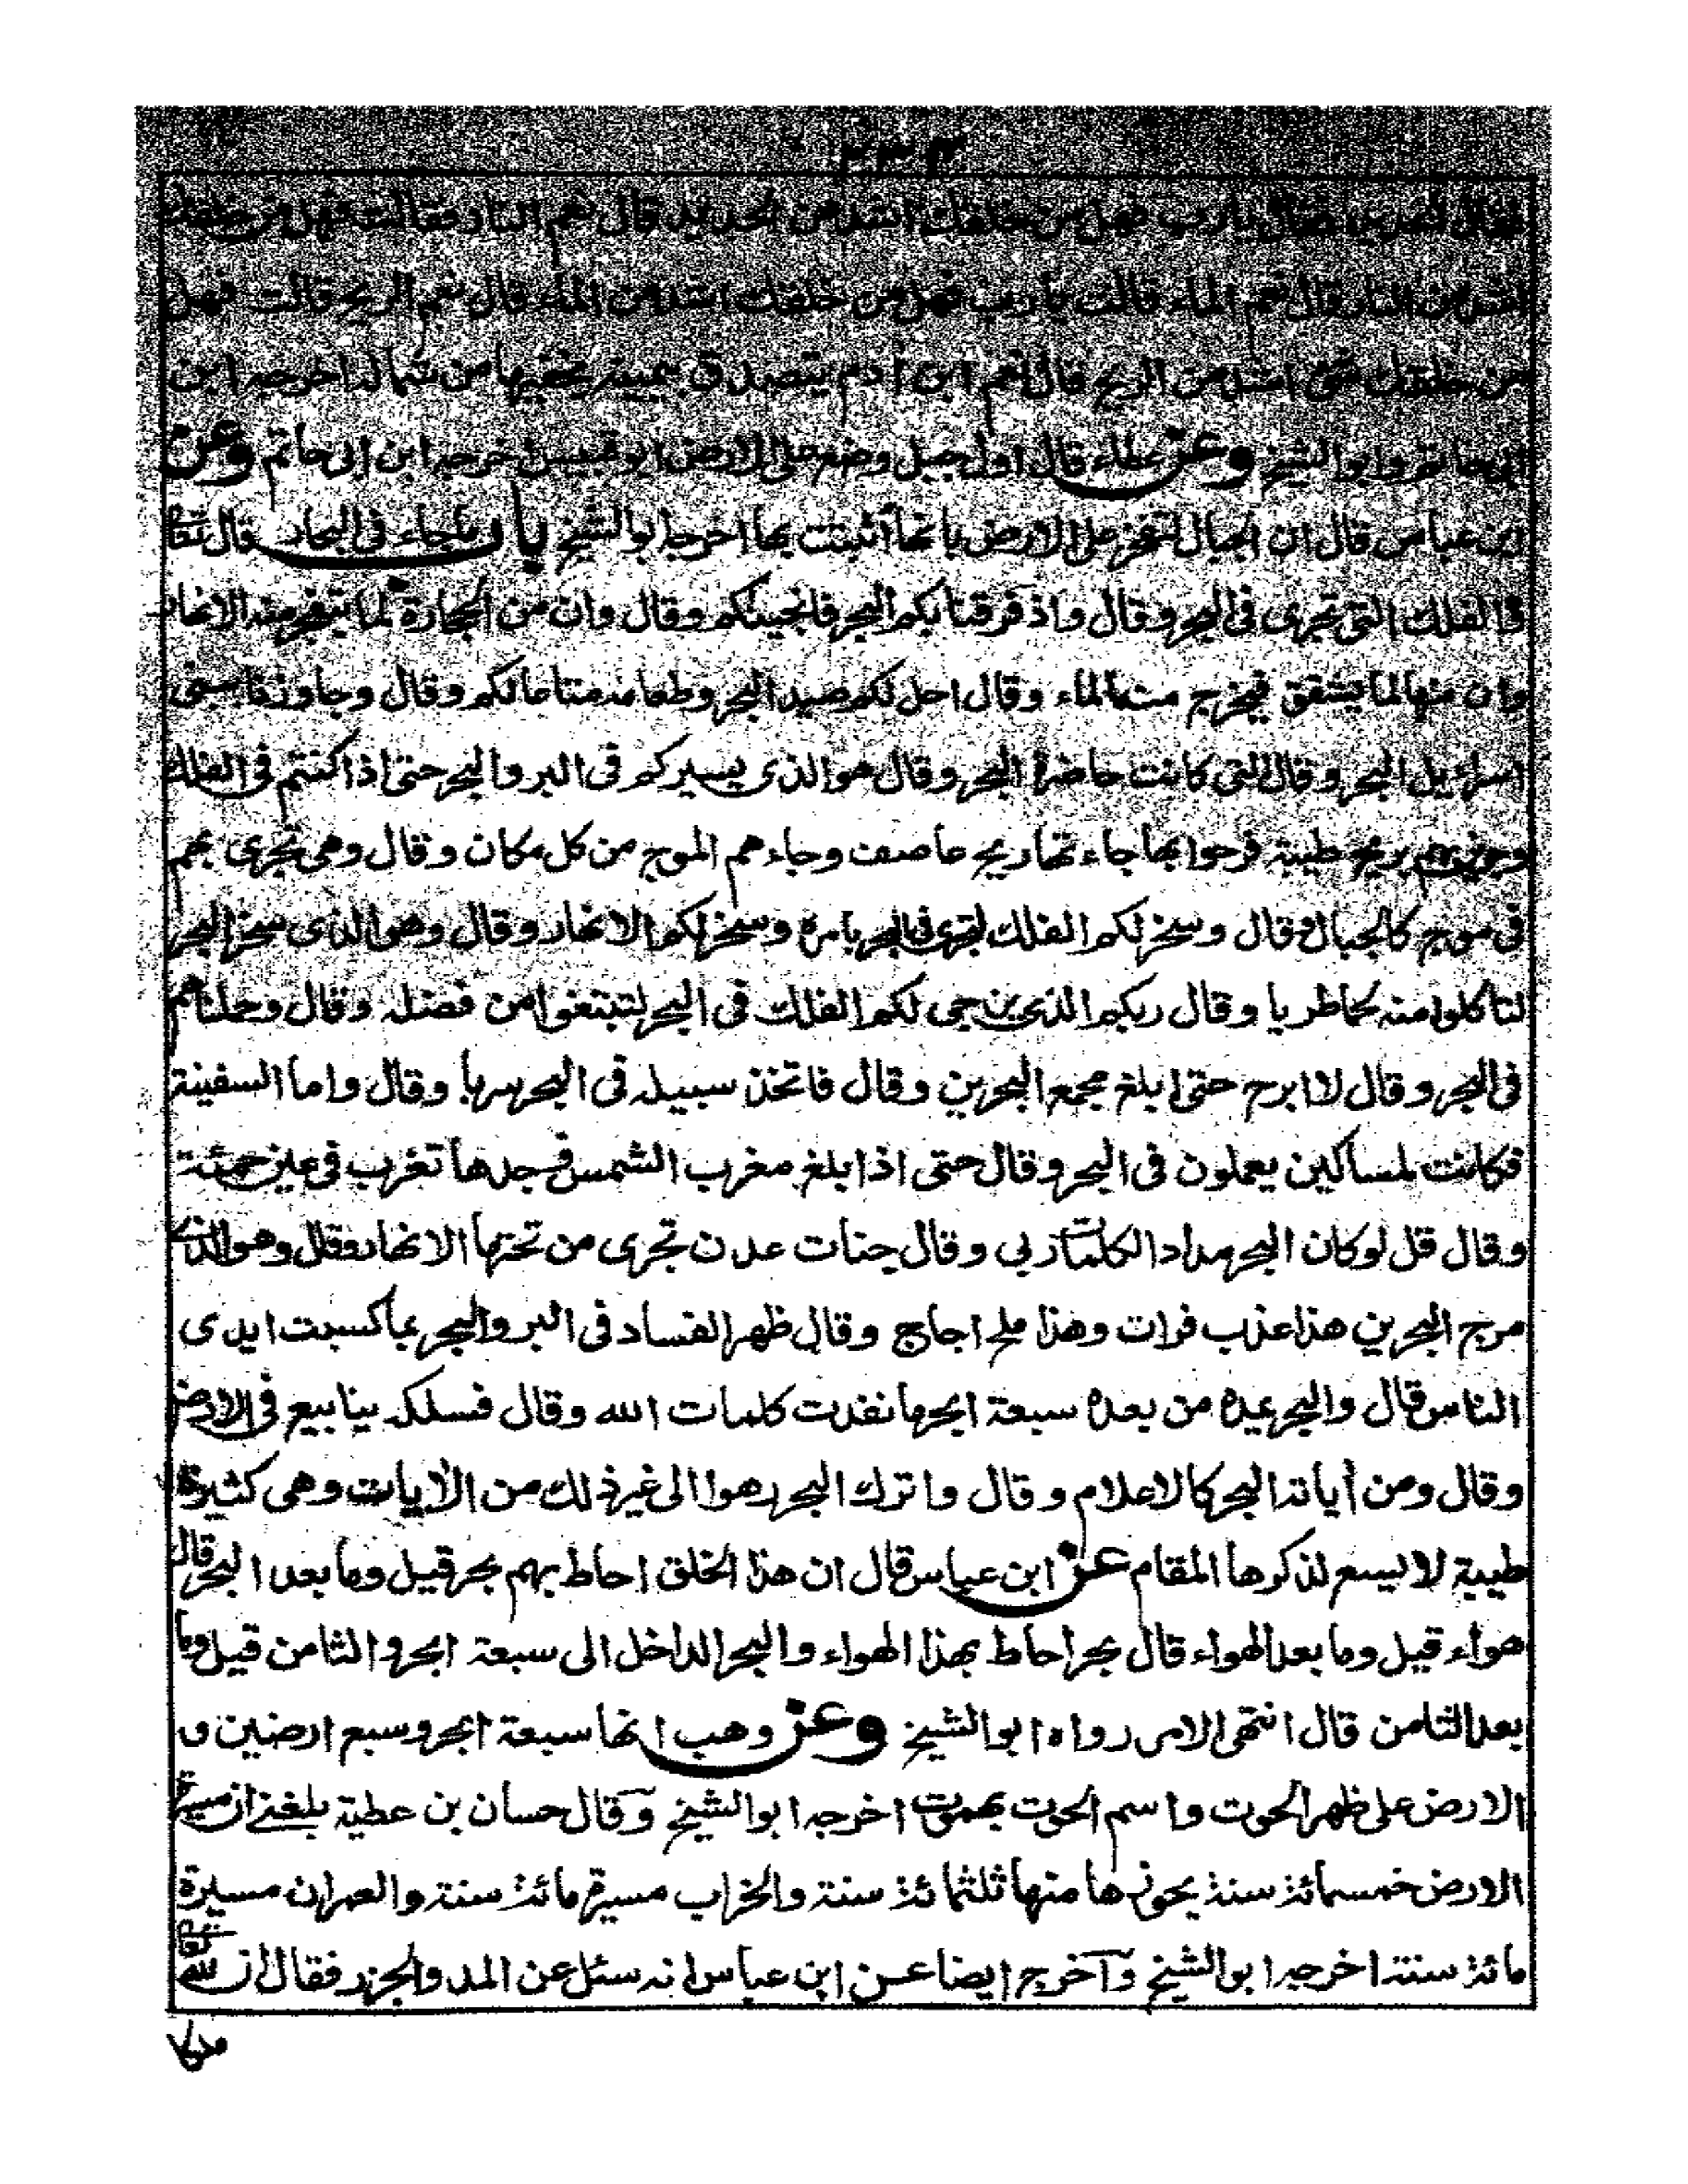 يارب فهل من خلقك اشد من الحديد قال نعم النار فقالت فهل من خلقك
اشد من النار قال نعم الماء قالت يارب فهل من خلقك اشد من الماء قال نعم الريح قالت فهل
من خلقك شئ اشد من الريح قال نعم ابن ادم يتصدق بيمينه يخفيها من شماله اخرجه ابن
ابى حاتم وابو الشيخ وعن عطاء قال اول جبل وضع على الارض ابو قبيس اخرجه ابن ابى حاتم وعن
ابن عباس قال ان الجبال لتفخر على الارض بانها أثبتت بها اخرجه ابو الشيخ باب ماجاء فى البحار قال تعا
والفلك التى تجرى فى البحر وقال واذ فرقنا بكم البحر فانجيناكم وقال وان من الحجارة لما يتفجر منه الانهار
وان منها لما يشقق فيخرج منه الماء وقال احل لكم صيد البحر وطعامه متاعا لكم وقال وجاوزنا ببنى
اسرائيل البحر وقال التى كانت حاضرة البحر وقال هو الذى يسيركم فى البر والبحر حتى اذا كنتم فى الفلك
وجرين بهم بريح طيبة فرحوا بها جاءتها ريح عاصف وجاءهم الموج من كل مكان وقال وهى تجرى بهم
فى موج كالجبال وقال وسخر لكم الفلك لتجرى فى البحر بامره وسخر لكم الانهار وقال وهو الذى سخر البحر
لتأكلوا منه لحما طريا وقال ربكم الذى يزجى لكم الفلك فى البحر لتبتغوا من فضله وقال وحملناهم
فى البحر وقال لا ابرح حتى ابلغ مجمع البحرين وقال فاتخذ سبيله فى البحر سربا وقال واما السفينة
فكانت لمساكين يعملون فى البحر وقال حتى اذا بلغ مغرب الشمس وجدها تغرب فى عين حمئة
وقال قل لوكان البحر مدادا لكلمات ربي وقال جنات عدن تجرى من تحتها الانهار وقال وهو الذى
مرج البحرين هذا عذب فرات وهذا ملح اجاج وقال ظهر الفساد فى البر والبحر بما كسبت ايدى
الناس قال والبحر يمده من بعده سبعة ابحر ما نفدت كلمات الله وقال فسلكه ينابيع فى الارض
وقال ومن أياته البحر كالاعلام وقال واترك البحر رهوا الى غير ذلك من الأيات وهى كثيرة
طيبة لا يسع لذكرها المقام عن ابن عباس قال ان هذا الخلق احاط بهم بحر قيل وما بعد البحر قال
هواء قيل وما بعد الهواء قال بحر احاط بهذا الهواء والبحر الداخل الى سبعة ابحر والثامن قيل وما
بعد الثامن قال انتهى الامر رواه ابو الشيخ وعن وهب انها سبعة ابحر وسبع ارضين و
الارض على ظهر الحوت واسم الحوت بهموت اخرجه ابو الشيخ وقال حسان بن عطية بلغنى ان مسيرة
الارض خمسمائة سنة بحورها منها ثلثمائة سنة والخراب مسيرة مائة سنة والعمران مسيرة
مائة سنة اخرجه ابو الشيخ وآخرج ايضا عن ابن عباس انه سئل عن المد والجزر فقال ان لله تعالى
ملكا